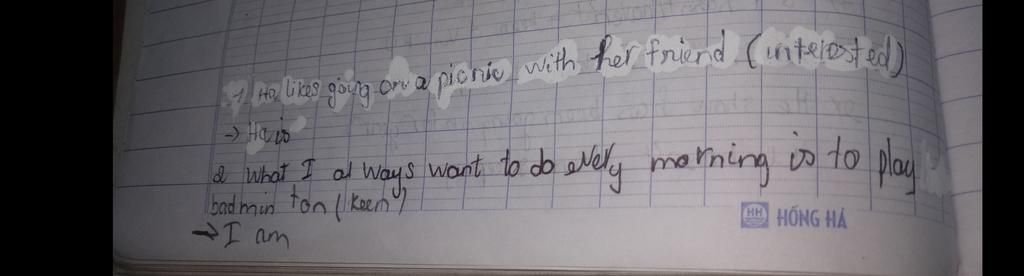 1 Ha likes going on a picnic with her friend (interested)
→ Ha is
2 what I al ways want to do every morning is to play
badmin ton (keen)
→ I am
HH HỒNG HÀ